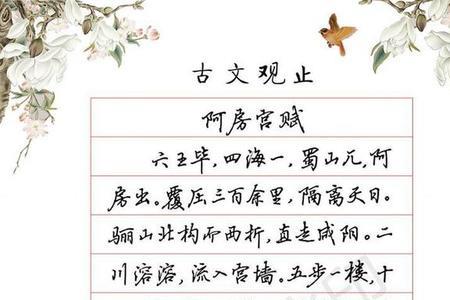 古文观止
阿房宫赋
六王毕,四海一,蜀山兀,阿
房出。覆压三百余里,隔离天日。
骊山北构而西折,直走咸阳。二
川溶溶,流入宫墙。五步一楼,十